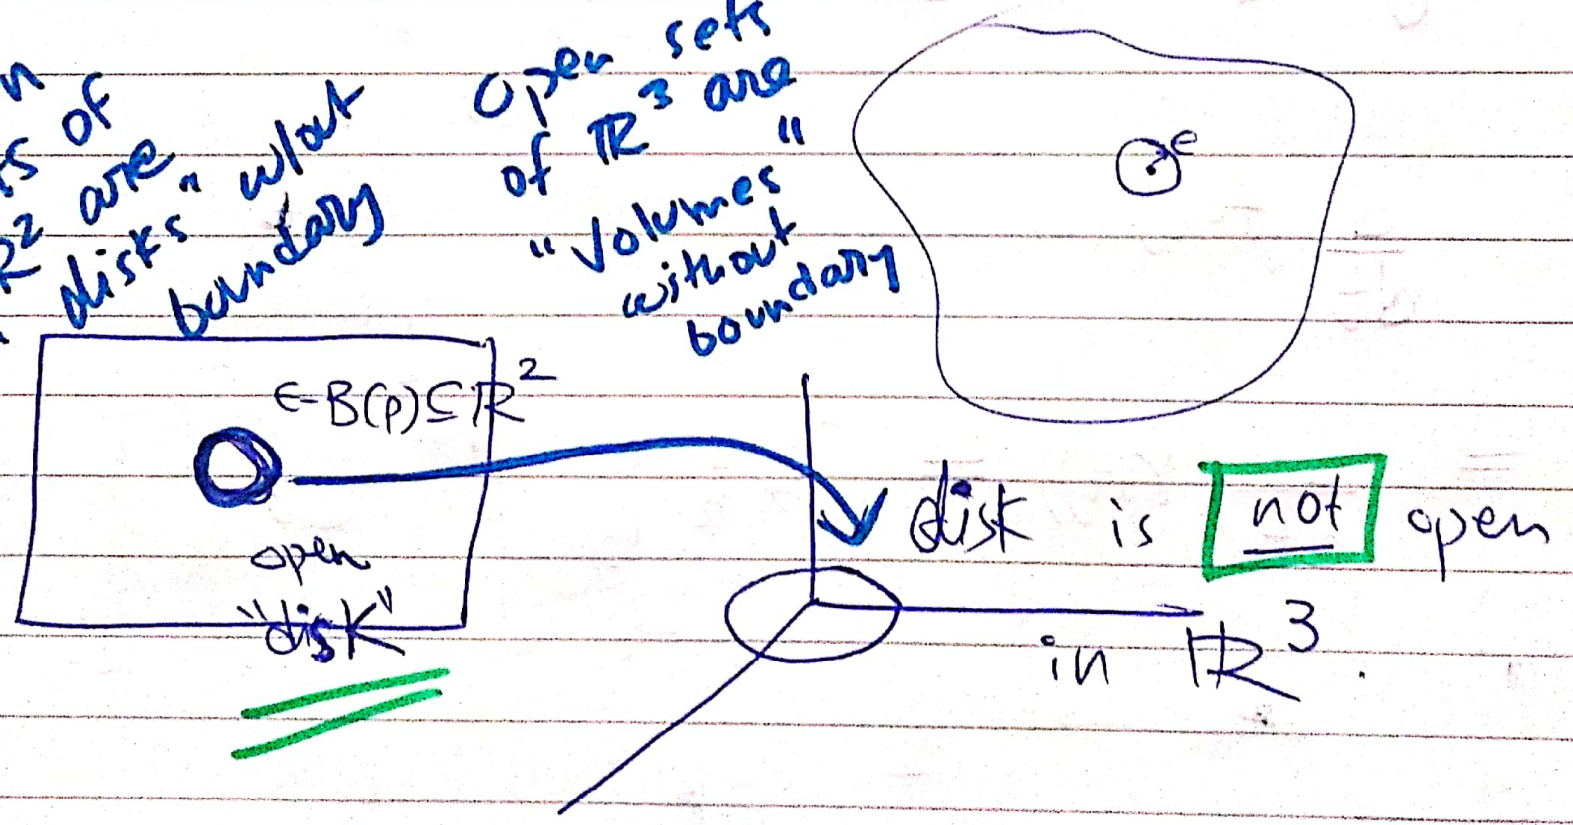 of
are
disks" w/out
boundary
Open sets
of ℝ³ are
"
"Volumes"
without
boundary
ϵ
ϵ-B(p)⊆ℝ²
open
"disk"
disk is not open
in ℝ³.